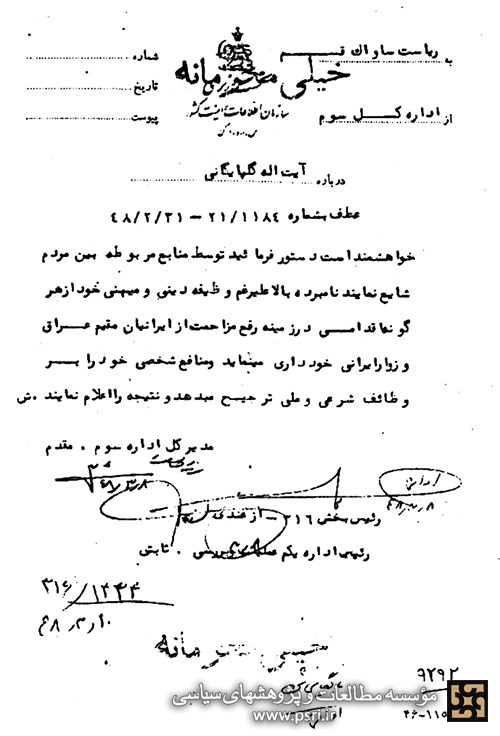 به ریاست ساواک قم
خیلی محرمانه
شماره
تاریخ
از اداره کل سوم
سازمان اطلاعات و امنیت کشور
پیوست
درباره آیت اله گلپایگانی
عطف بشماره ۲۱/۱۱۸۴ - ۴۸/۲/۳۱
خواهشمند است دستور فرمائید توسط منابع مربوطه بین مردم
شایع نمایند نامبرده بالا علیرغم وظیفه دینی و میهنی خود از هر
گونه اقدامی در زمینه رفع مزاحمت از ایرانیان مقیم عراق
و زوار ایرانی خودداری مینماید و منافع شخصی خود را بر
وظائف شرعی و ملی ترجیح میدهد و نتیجه را اعلام نمایند . ش
مدیر کل اداره سوم . مقدم
۴۸/۳/۸
رئیس بخش ۳۱۶ - ازغندی
رئیس اداره یکم عملیات و بررسی . ثابتی
۳۱۶/۱۲۴۴
۱۰/۳/۴۸
خیلی محرمانه
۹۲۹۲
موسسه مطالعات و پژوهشهای سیاسی
www.psri.ir
۴۶-۱۱۵